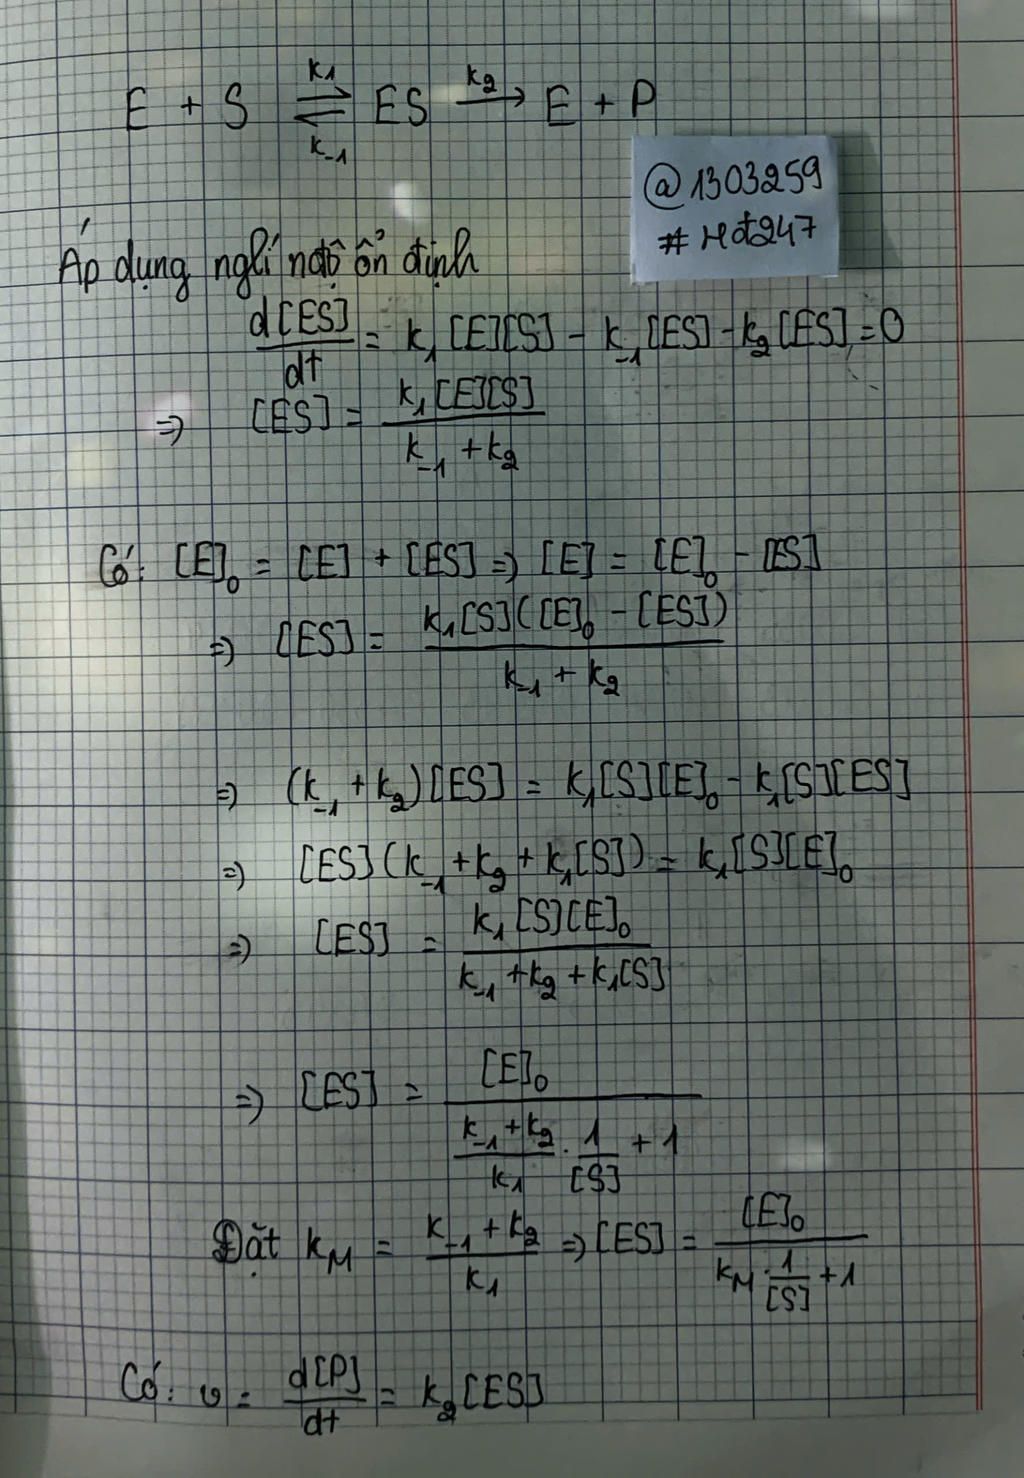 E + S ⇌ ES → E + P
k₁ k₂
k₋₁
@1303259
# Hđ247
Áp dụng nglí nđộ ổn định
d[ES]/dt = k₁[E][S] - k₋₁[ES] - k₂[ES] = 0
⇒ [ES] = k₁[E][S] / (k₋₁ + k₂)
Có: [E]₀ = [E] + [ES] ⇒ [E] = [E]₀ - [ES]
⇒ [ES] = k₁[S]([E]₀ - [ES]) / (k₋₁ + k₂)
⇒ (k₋₁ + k₂)[ES] = k₁[S][E]₀ - k₁[S][ES]
⇒ [ES](k₋₁ + k₂ + k₁[S]) = k₁[S][E]₀
⇒ [ES] = k₁[S][E]₀ / (k₋₁ + k₂ + k₁[S])
⇒ [ES] = [E]₀ / ((k₋₁ + k₂)/k₁ . 1/[S] + 1)
Đặt k_M = (k₋₁ + k₂)/k₁ ⇒ [ES] = [E]₀ / (k_M . 1/[S] + 1)
Có: v = d[P]/dt = k₂[ES]